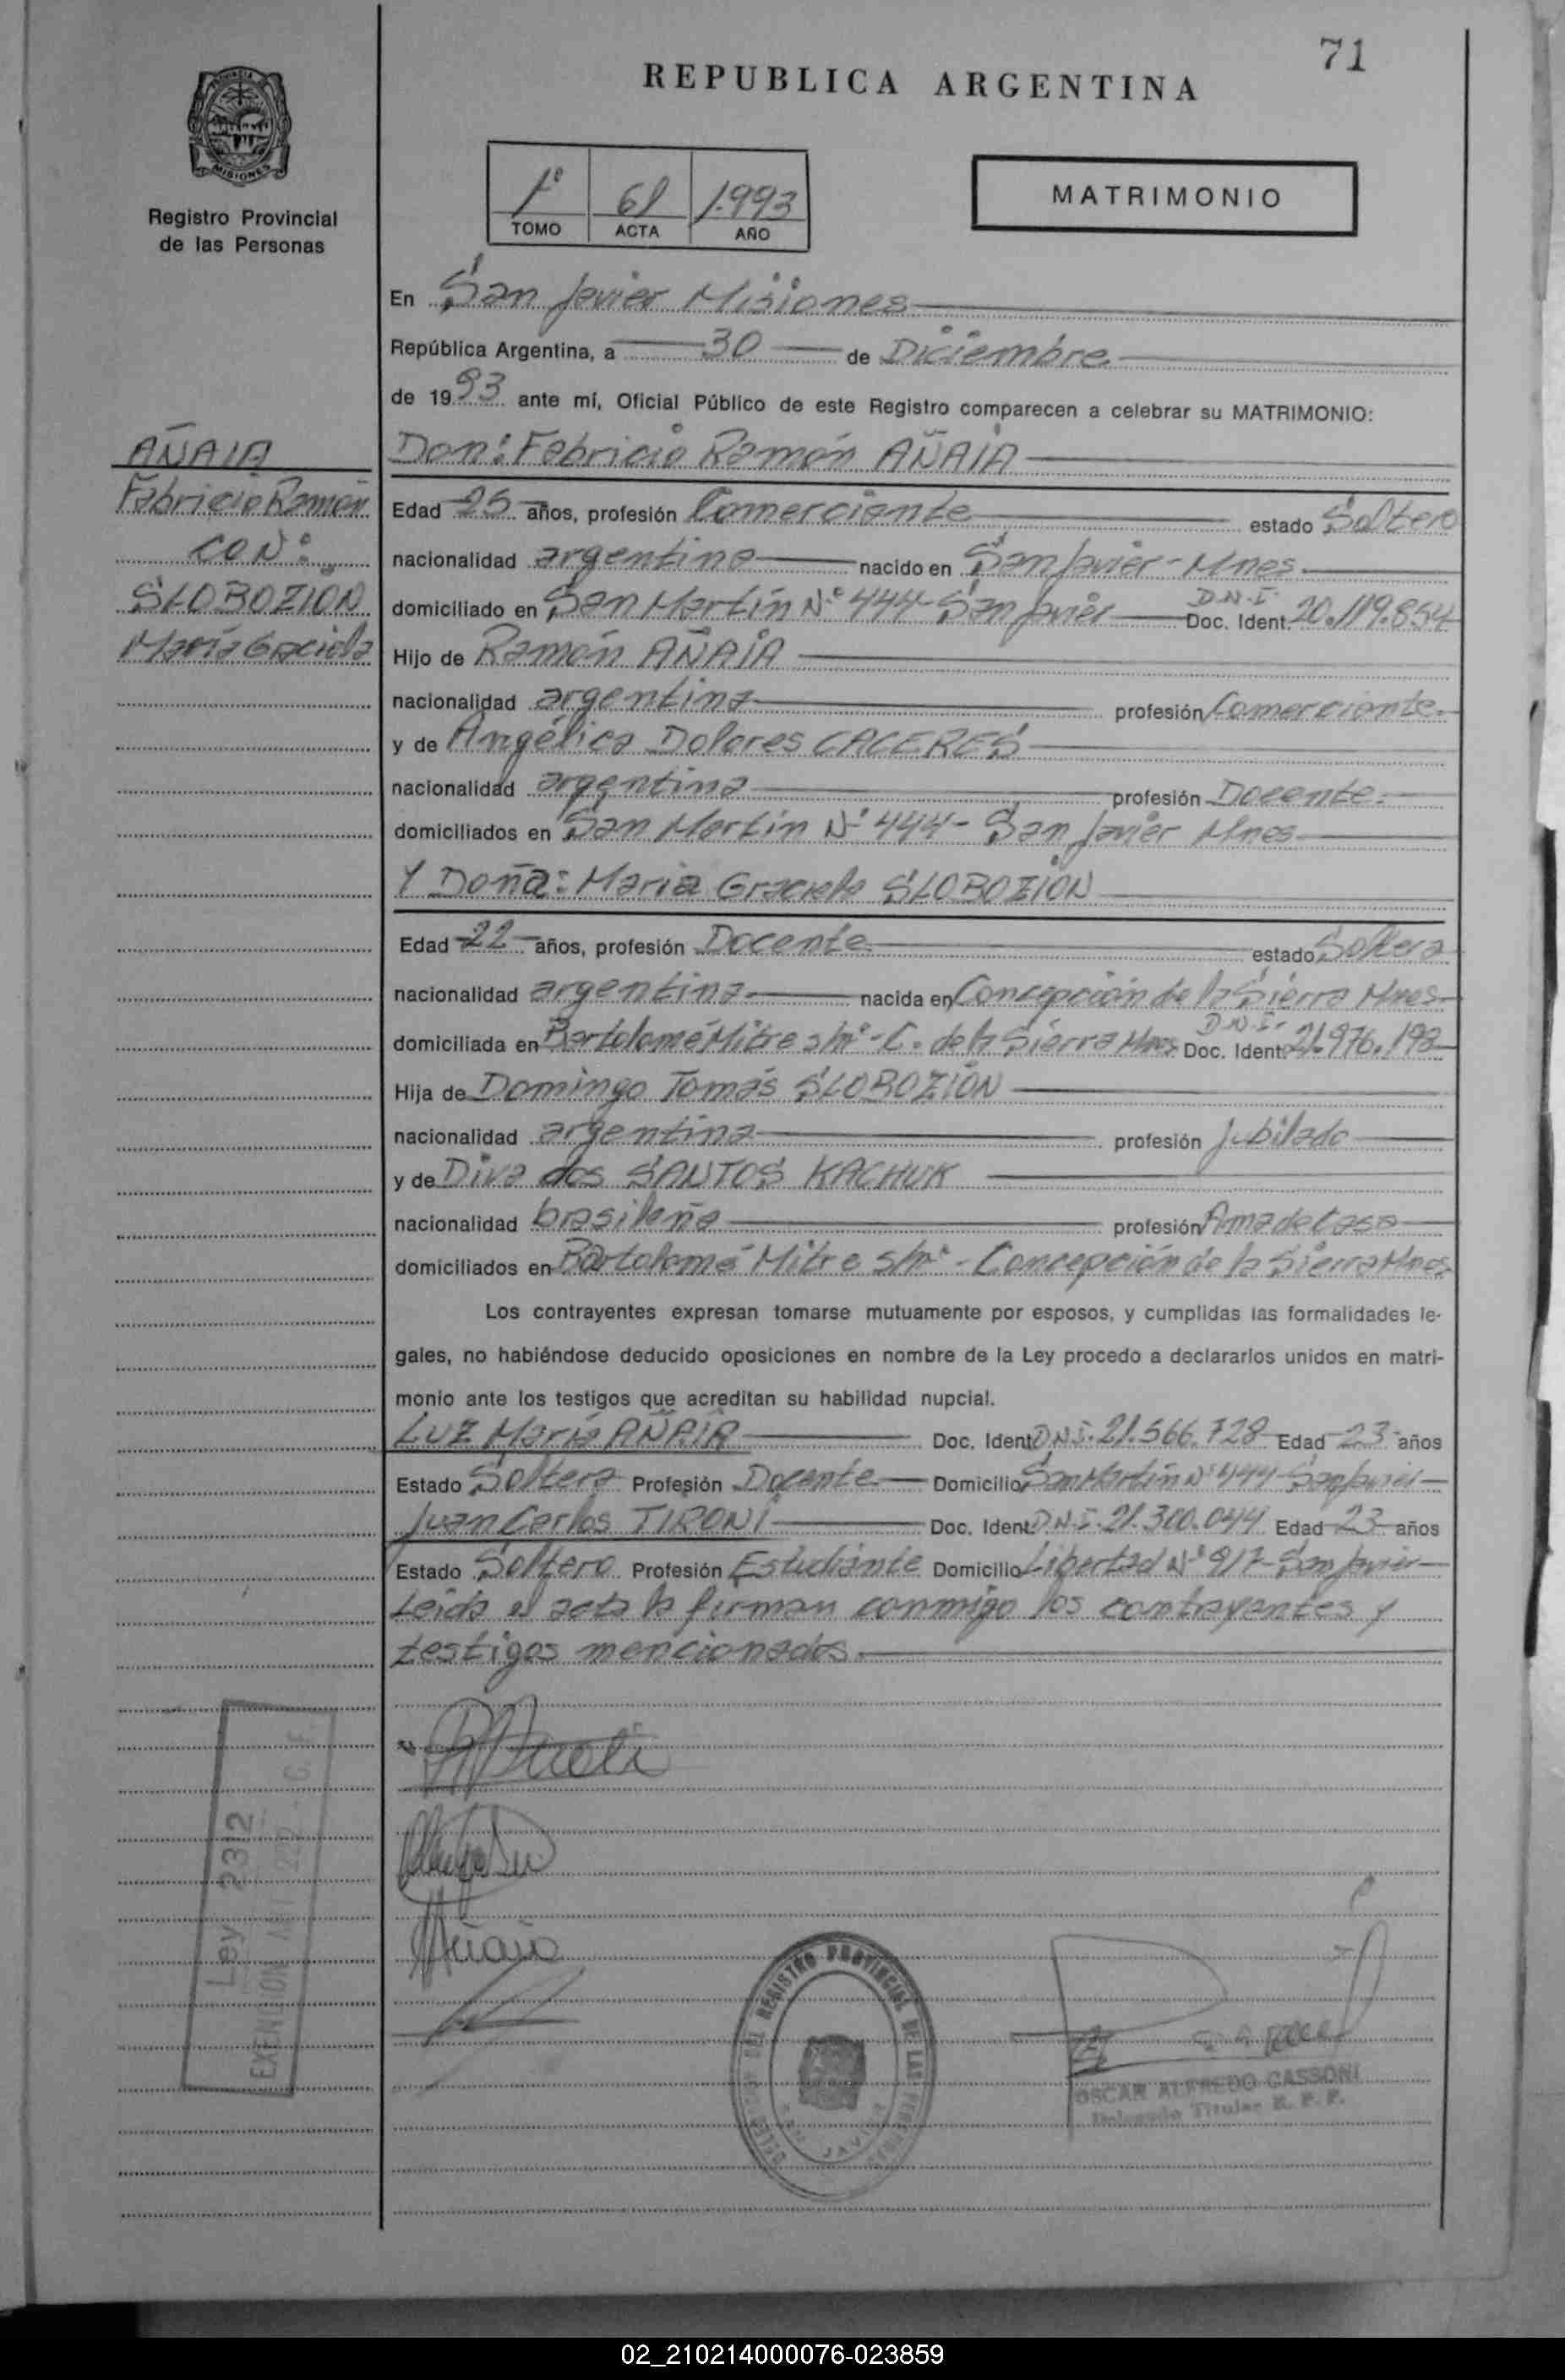 71
REPUBLICA ARGENTINA
PROVINCIA
MISIONES
Registro Provincial
de las Personas
1º 61 1.993
TOMO ACTA AÑO
MATRIMONIO
En San Javier Misiones
República Argentina, a 30 de Diciembre
de 1993 ante mí, Oficial Público de este Registro comparecen a celebrar su MATRIMONIO:
AÑAIA
Fabricio Ramón
CON:
SLOBOZION
María Graciela
Don: Fabricio Ramón AÑAIA
Edad 25 años, profesión Comerciante estado Soltero
nacionalidad argentina nacido en San Javier - Mnes.
domiciliado en San Martín Nº 444 - San Javier D.N.I. Doc. Ident. 20.119.854
Hijo de Ramón AÑAIA
nacionalidad argentina profesión Comerciante.
y de Angélica Dolores CACERES
nacionalidad argentina profesión Docente.
domiciliados en San Martín Nº 444 - San Javier Mnes
Y Doña: Maria Graciela SLOBOZION
Edad 22 años, profesión Docente estado Soltera
nacionalidad argentina. nacida en Concepción de la Sierra Mnes
domiciliada en Bartolomé Mitre s/nº - C. de la Sierra Mnes D.N.I. Doc. Ident. 21.976.198
Hija de Domingo Tomás SLOBOZION
nacionalidad argentina profesión Jubilado
y de Diva dos SANTOS KACHUK
nacionalidad brasileña profesión Ama de Casa
domiciliados en Bartolomé Mitre s/nº - Concepción de la Sierra Mnes
Los contrayentes expresan tomarse mutuamente por esposos, y cumplidas las formalidades le-
gales, no habiéndose deducido oposiciones en nombre de la Ley procedo a declararlos unidos en matri-
monio ante los testigos que acreditan su habilidad nupcial.
LUZ María AÑAIA Doc. Ident D.N.I. 21.566.728 Edad 23 años
Estado Soltera Profesión Docente Domicilio San Martín Nº 444 - San Javier
Juan Carlos TIRONI Doc. Ident D.N.I. 21.300.044 Edad 23 años
Estado Soltero Profesión Estudiante Domicilio Libertad Nº 917 - San Javier
Leida el acta la firman conmigo los contrayentes y
testigos mencionados.
Ley 2312
EXENCION
REGISTRO PROVINCIAL DE LAS PERSONAS
SAN JAVIER
OSCAR ALFREDO CASSONI
Delegado Titular R. P. P.
02_210214000076-023859